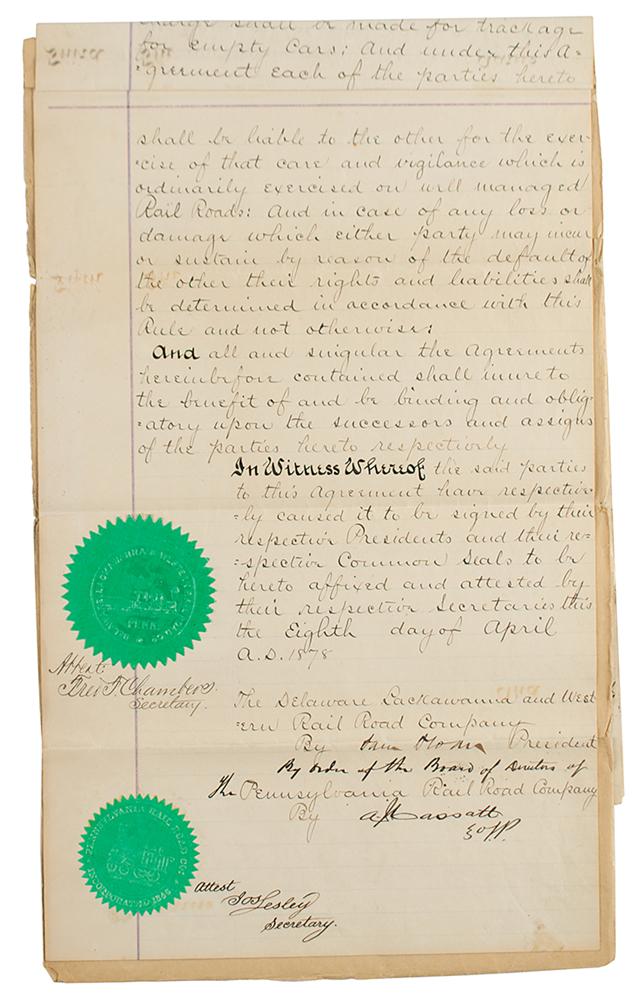 charge shall be made for trackage
for empty Cars; And under this A-
-greement each of the parties hereto
shall be liable to the other for the exer
-cise of that care and vigilance which is
ordinarily exercised on well managed
Rail Roads: And in case of any loss or
damage which either party may incur
or sustain by reason of the default of
the other their rights and liabilities shall
be determined in accordance with this
Rule and not otherwise:
And all and singular the Agreements
hereinbefore contained shall inure to
the benefit of and be binding and oblig-
-atory upon the successors and assigns
of the parties hereto respectively
In Witness Whereof the said parties
to this Agreement have respective-
-ly caused it to be signed by their
respective Presidents and their re-
-spective Common Seals to be
hereto affixed and attested by
their respective Secretaries this
the Eighth day of April
A.D. 1878
Attest
Fred F. Chambers.
Secretary.
The Delaware Lackawanna and West
-ern Rail Road Company
By Sam Sloan President
By order of the Board of Directors of
The Pennsylvania Rail Road Company
By A J Cassatt
3d VP.
PENNSYLVANIA RAIL ROAD CO.
INCORPORATED 1846
Attest
Jos Lesley
Secretary.
PENN.